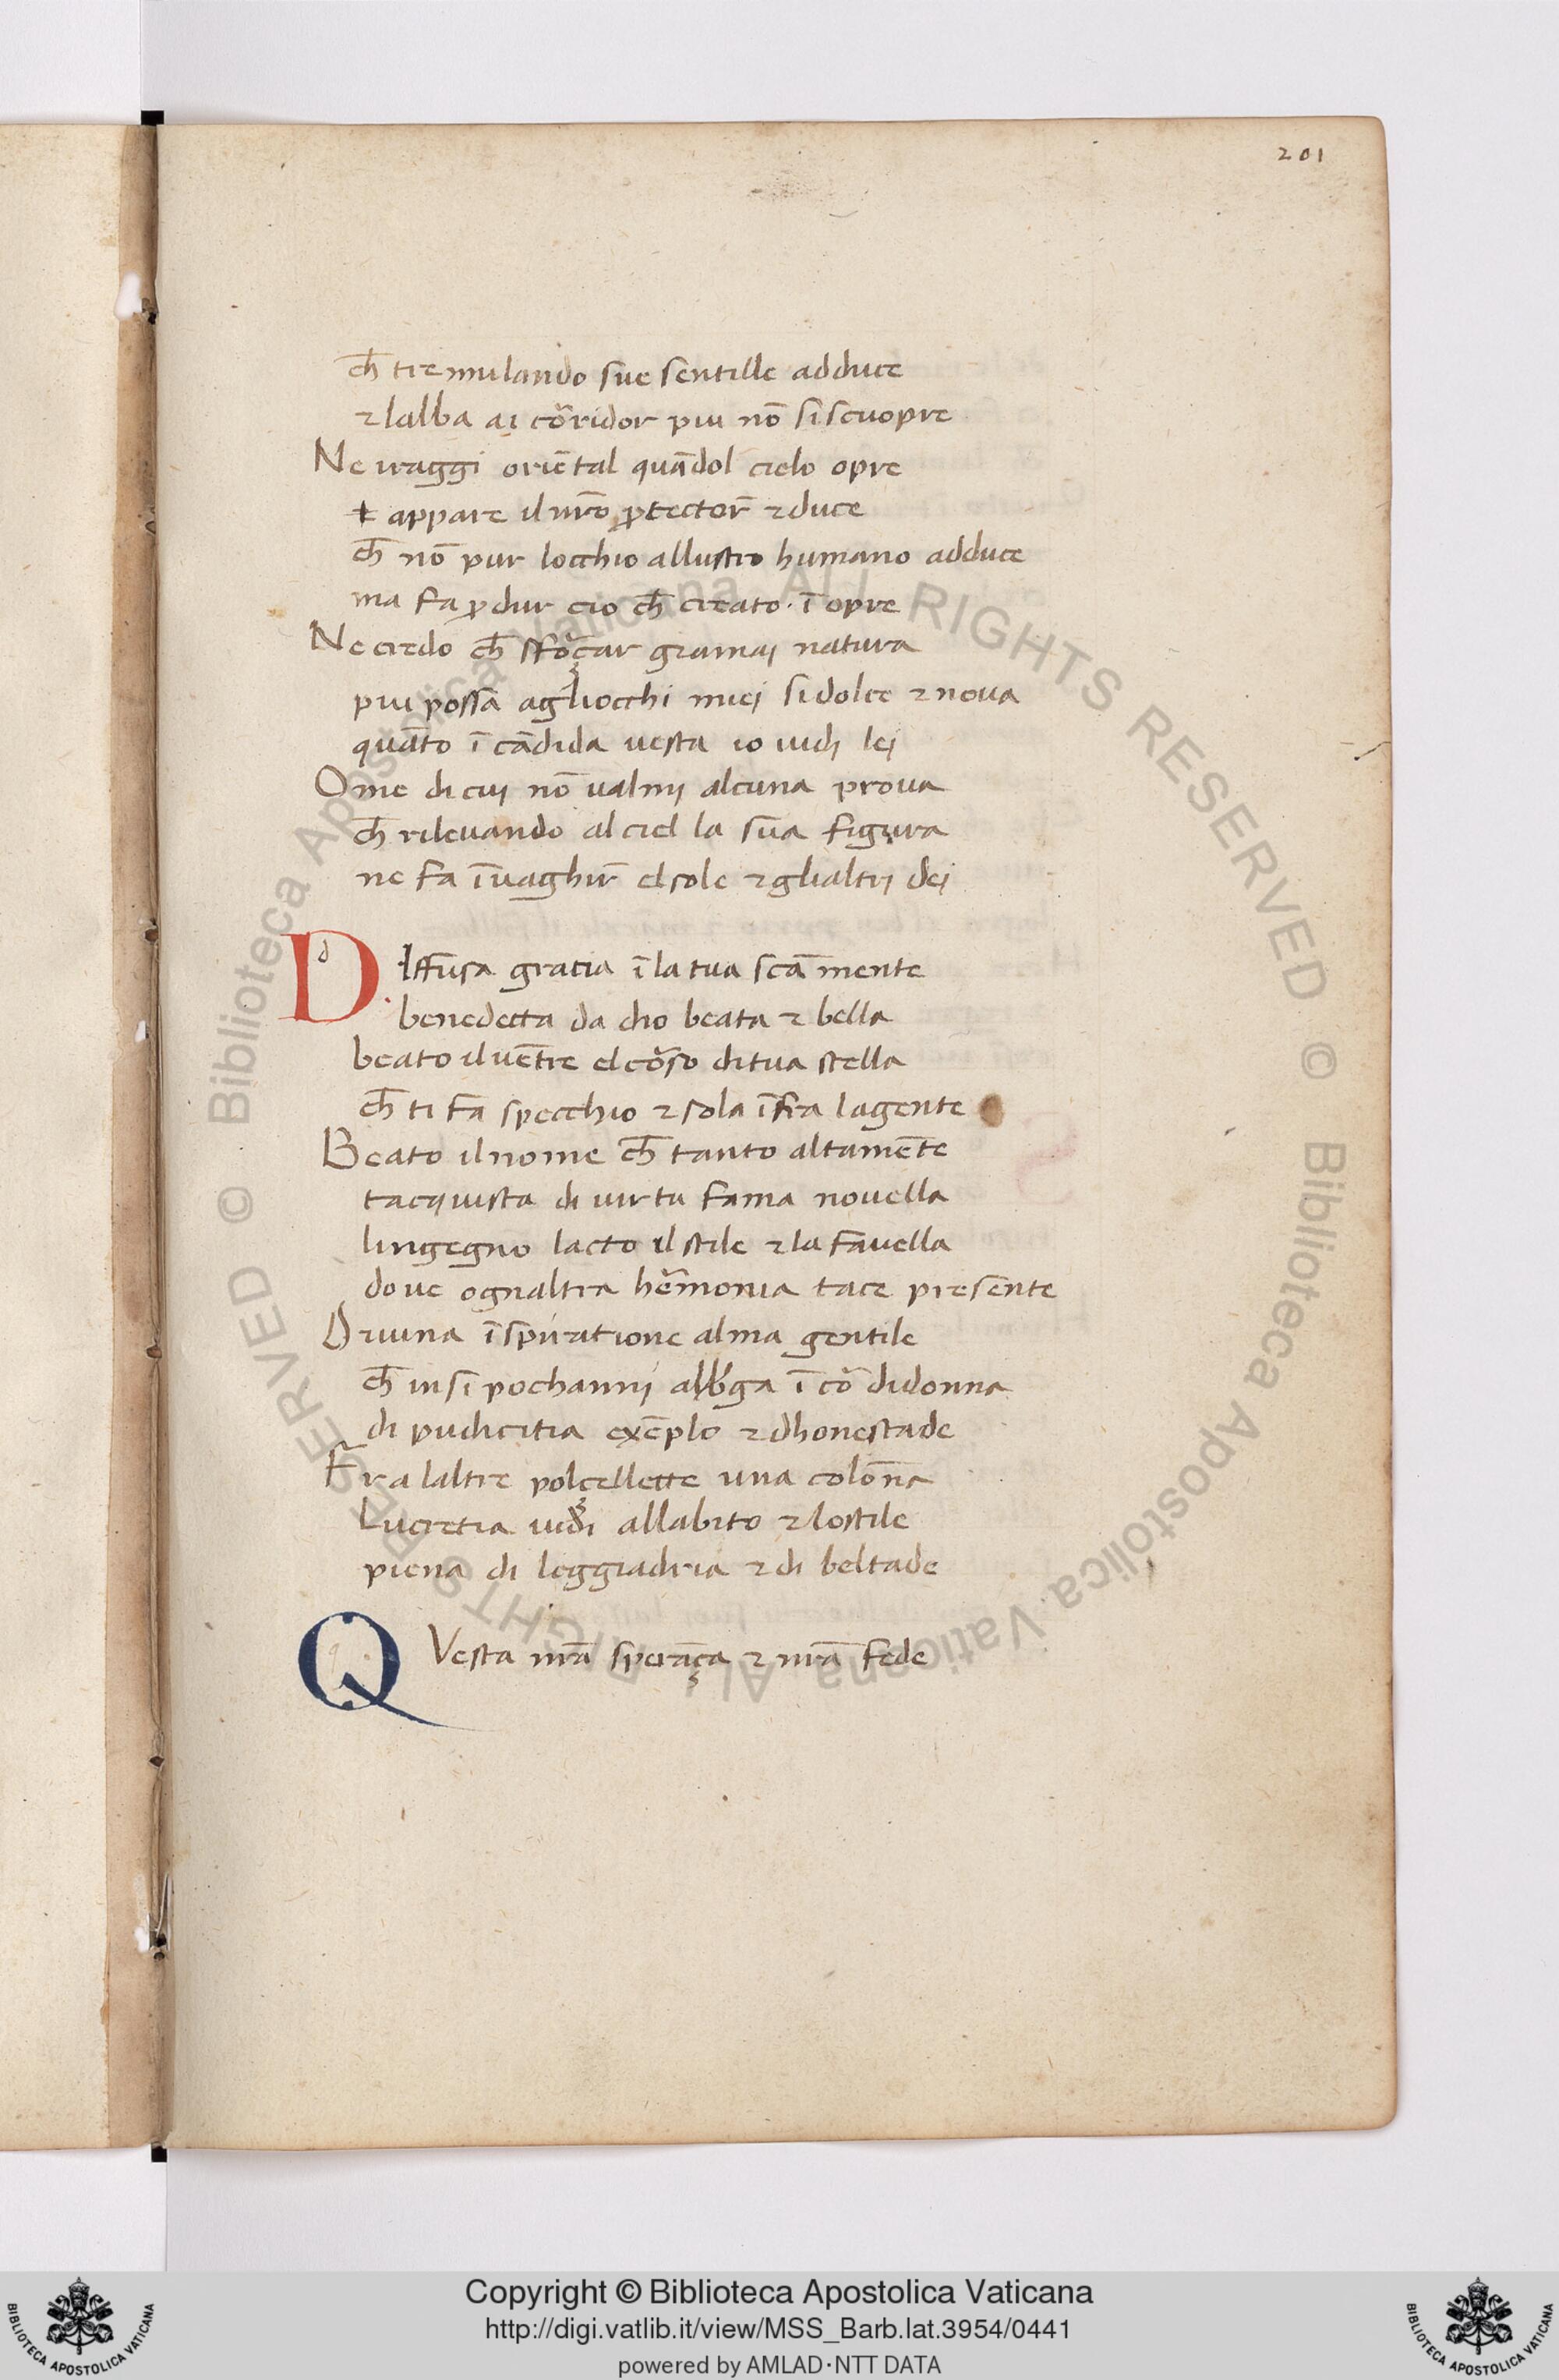 201
ch̄ tremulando sue sentille adduce
⁊ lalba ai cōridor piu nō si scuopre
Ne uraggi oriētal quādol cielo opre
⁊ appare il nr̄o ꝓtector̄ ⁊ duce
ch̄ nō pur locchio allustro humano adduce
ma fa ꝑdur cio ch̄ creato · ī opre
Ne credo ch̄ sforçar gramaj natura
piu possa agliocchi miej si dolce ⁊ noua
quāto ī cādida uesta io uidj lej
Ome di cuj nō ualmj alcuna proua
ch̄ rileuando al ciel la sua figura
ne fa īuaghir̄ el sole ⁊ glialtrj dej
D d Iffusa gratia ī la tua scā mente
benedecta da dio beata ⁊ bella
beato il uētre el cōrso di tua stella
ch̄ ti fa specchio ⁊ sola īfra la gente
Beato il nome ch̄ tanto altamēte
tacquista di uirtu fama nouella
lingegno lacto il stile ⁊ la fauella
doue ognaltra hermonia tace presente
Diuina īspiratione alma gentile
ch̄ in si pochannij albga ī cō di donna
di pudicitia exēplo ⁊ dhonestade
Fra laltre polçellette una colōna
Lucretia uidi allabito ⁊ lo stile
piena di leggiadria ⁊ di beltade
Q Vesta nr̄a sperāça ⁊ nr̄a fede
© Biblioteca Apostolica Vaticana ALL RIGHTS RESERVED © Biblioteca Apostolica Vaticana ALL RIGHTS RESERVED
Copyright © Biblioteca Apostolica Vaticana
http://digi.vatlib.it/view/MSS_Barb.lat.3954/0441
powered by AMLAD·NTT DATA
BIBLIOTECA APOSTOLICA VATICANA
BIBLIOTECA APOSTOLICA VATICANA